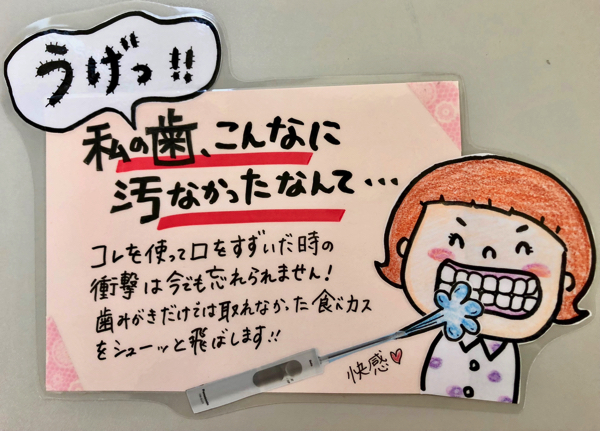 うげっ!!
私の歯、こんなに
汚なかったなんて…
コレを使って口をすずいだ時の
衝撃は今でも忘れられません!
歯みがきだけでは取れなかった食べカス
をシューッと飛ばします!!
快感